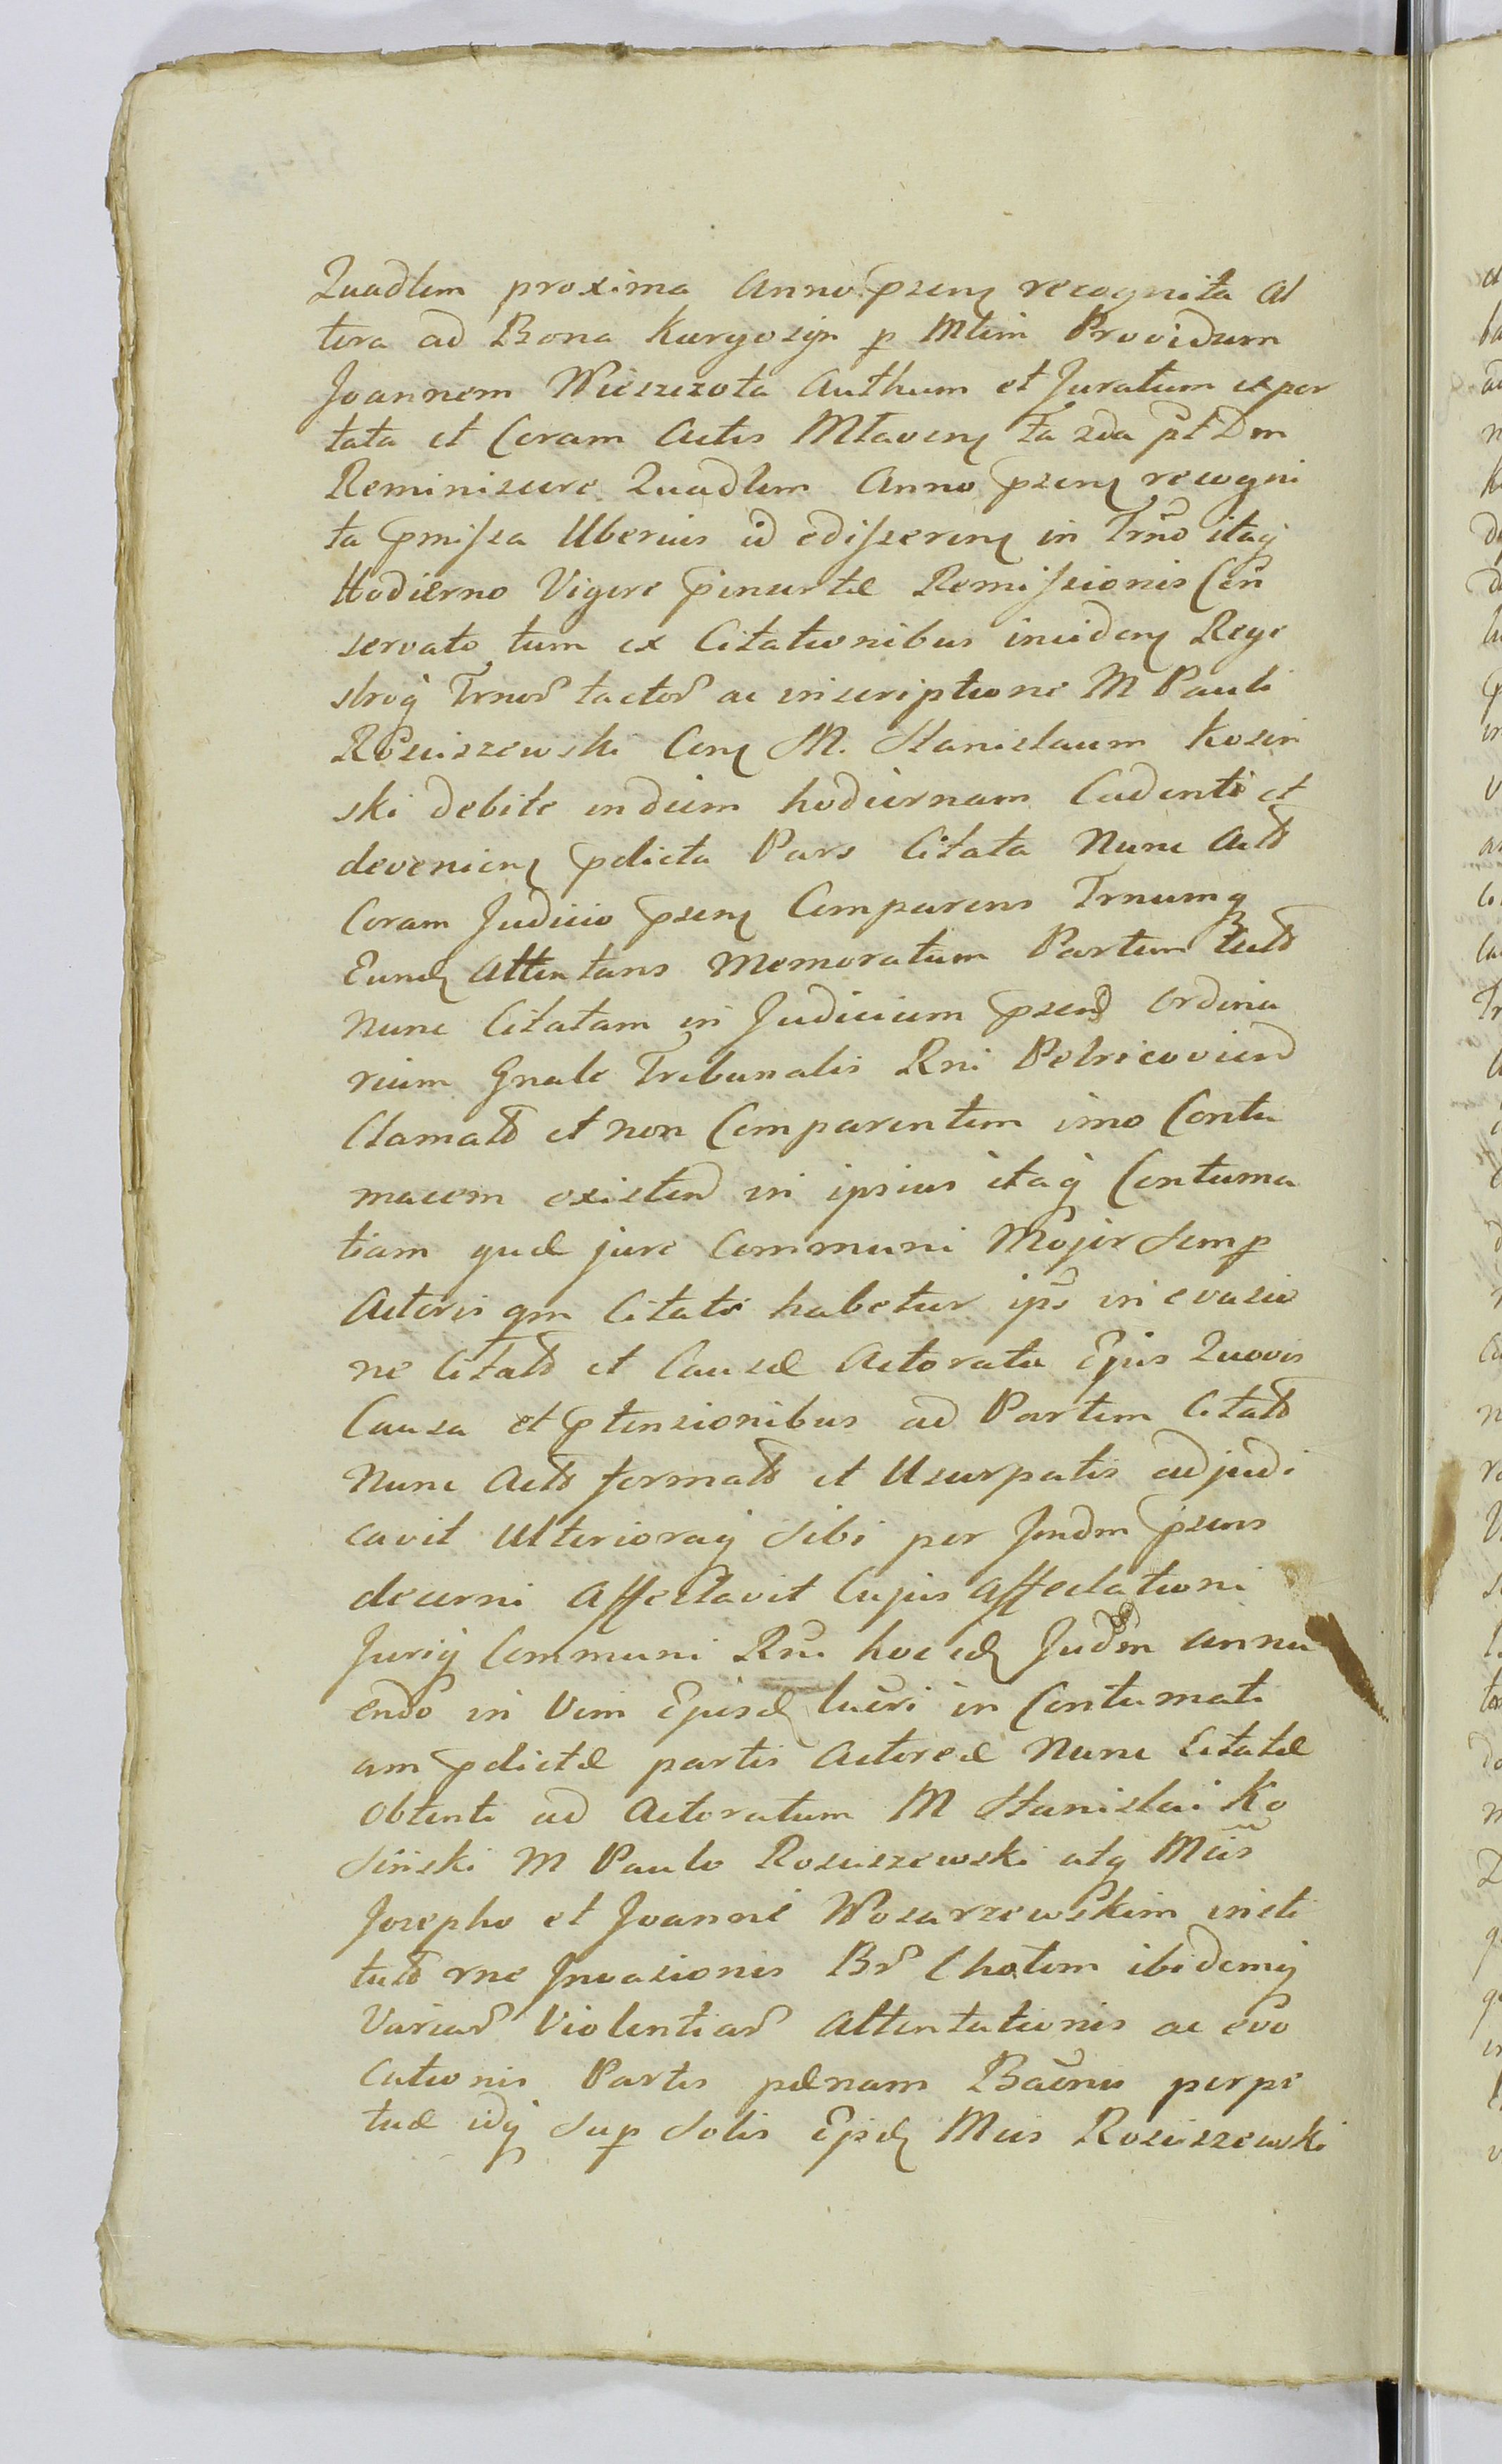 Quadlem proxima Anno pzenz recognita Al
tera ad Bona Kurgozyn p Mtim Providum
Joannem Wieszczota Authum et Juratum expor
tata et Coram Actis Mlavenz fa 2da pt Dm
Reminiscere Quadlem Anno pzenz recogni
ta pmissa Uberius id edisserenz in Trno itaq
Hodierno Vigore Remissionis Cen
servato tum ex Citationibus Rege
stroq Trnor tactor ac inscriptione M Pauli
Rosciszewski Conz M. Stanislaum Kosin
ski debite indeim hodiernam Cadenti et
devenienz pdicta Pars Citata Nunc Actt
Coram Judicio pzenz Comparens Trnumq
Eundz Attentans Memoratum Partem
nunc Citatam in Judicium pzens Ordina
rium Gnale Tribunalis Rni Petricovien
Clamatt et non Comparentem imo Contu
macem existen in ipsius itaq Contuma
tiam quæ jure Communi Mojor Semp
Actoris qm Citati habetur ips in evasio
ne Citatt et Causæ Actoratu Ejus Quovis
Causa et ptensionibus ad Partem Citatt
Nunc Actt formatt et Usurpatis adjudi
cavit Ulterioraq Sibi per Jmdm pzens
decerni Affectavit Cujus Affectationi
Juriq Communi Rni hoc idz Judm annu
endo in Vim Ejusdz lucri in Contumati
am pdictæ partis Actoreæ Nunc Citatæ
Obtenti ad Actoratum M Stanislai Ko
sinski M Paulo Rosciszewski atq Mcis
Josepho et Joanne Wosarzewskim insti
tutt rne Invasionis Br Chotom ibidemq
Variar Violentiar Attentationis ac evo
cationis Partis pænam Baenis perpe
tuæ idq Sup Solis Mcis Rosciszewski